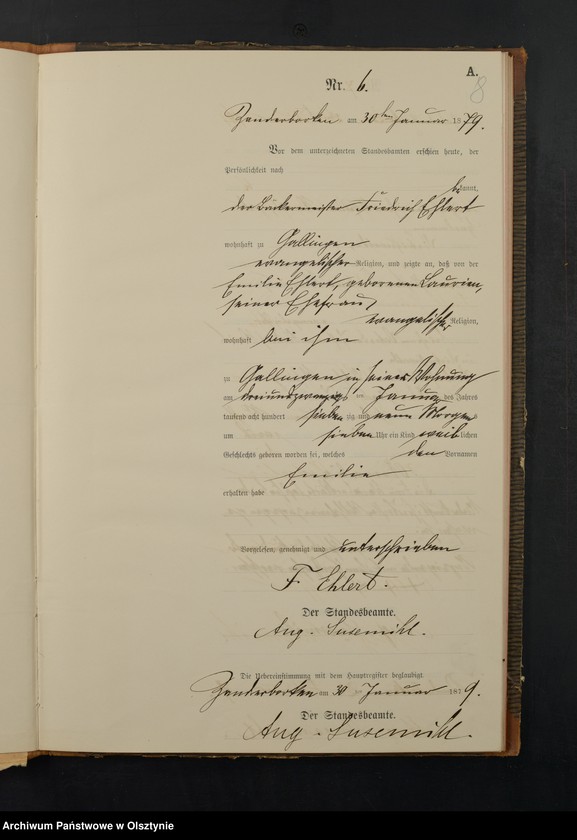 A.
8
Nr. 6.
Zanderborken am 30ten Januar 1879.
Vor dem unterzeichneten Standesbeamten erschien heute, der
Persönlichkeit nach
bekannt,
der Bäckermeister Friedrich Ehlert
wohnhaft zu Gallingen
evangelischer Religion, und zeigte an, daß von der
Emilie Ehlert, geborenen Laurien,
seiner Ehefrau,
evangelischer Religion,
wohnhaft bei ihm
zu Gallingen in seiner Wohnung
am dreiundzwanzigs ten Januar des Jahres
tausend acht hundert siebenzig und neun Morgens
um sieben Uhr ein Kind weiblichen
Geschlechts geboren worden sei, welches den Vornamen
Emilie
erhalten habe
Vorgelesen, genehmigt und unterschrieben
F. Ehlert.
Der Standesbeamte.
Aug. Susemihl.
Die Uebereinstimmung mit dem Hauptregister beglaubigt.
Zanderborken am 30 Januar 1879.
Der Standesbeamte.
Aug. Susemihl.
Archiwum Państwowe w Olsztynie